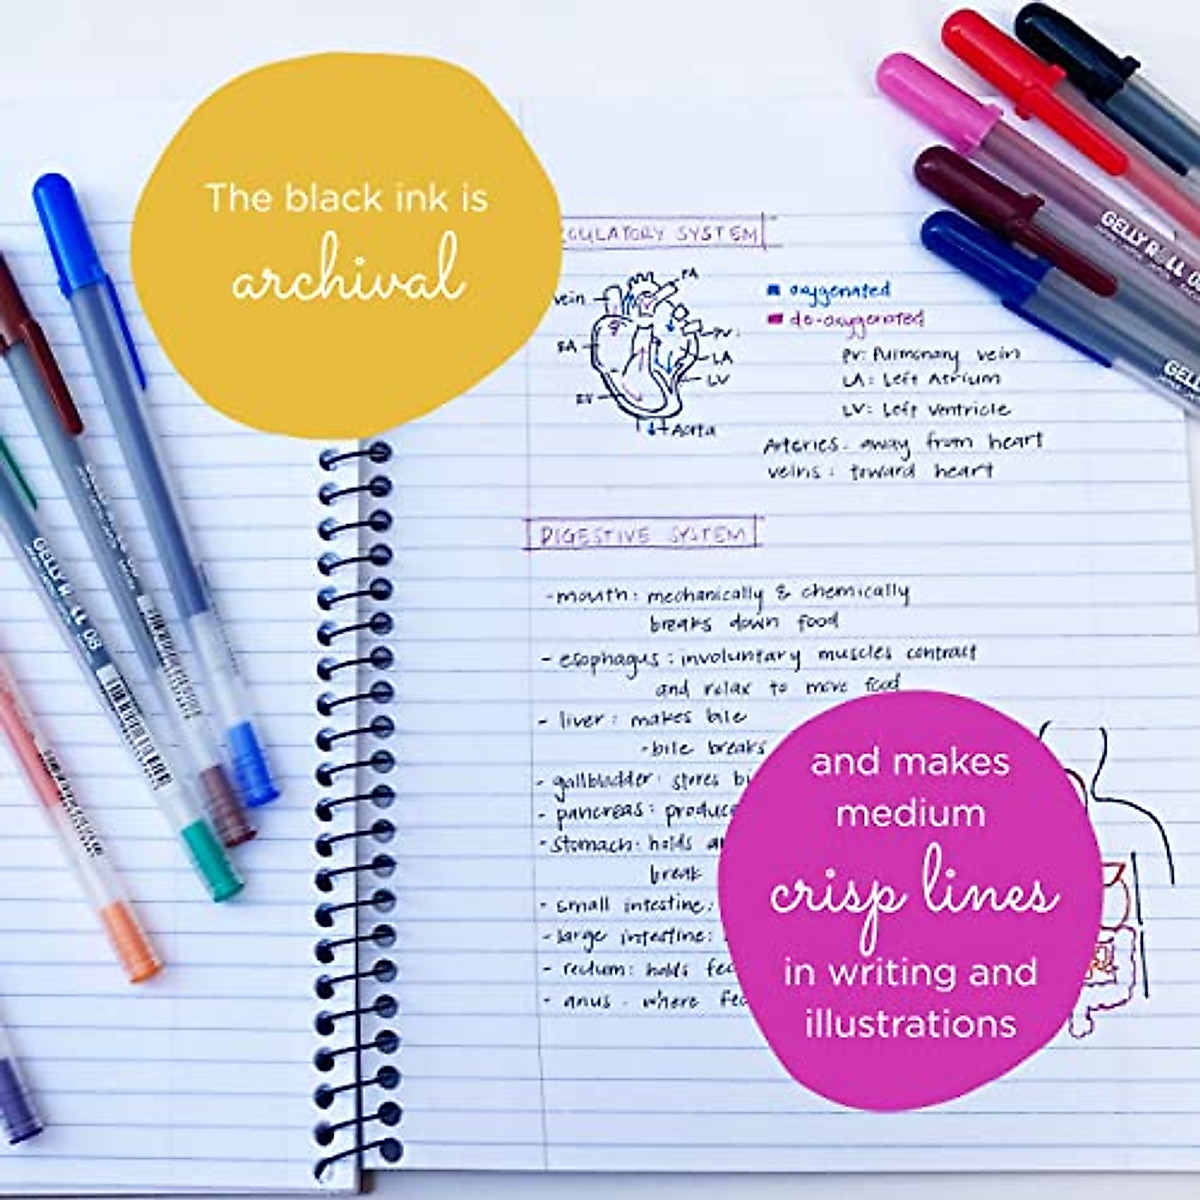 The black ink is
archival
CULATORY SYSTEM
vein
PA
RA
RV
PV
LA
LV
Aorta
oxygenated
de-oxygenated
PV: Pulmonary vein
LA: Left Atrium
LV: Left Ventricle
Arteries - away from heart
veins : toward heart
DIGESTIVE SYSTEM
- mouth: mechanically & chemically
breaks down food
- esophagus : involuntary muscles contract
and relax to move food
- liver: makes bile
- bile breaks
- gallbladder: stores bi
- pancreas: produce
- stomach: holds
break
- small intestine:
- large intestine:
- rectum: holds fec
- anus - where fec
and makes
medium
crisp lines
in writing and
illustrations
GELLY ROLL 08
GELLY ROLL 0
GELL